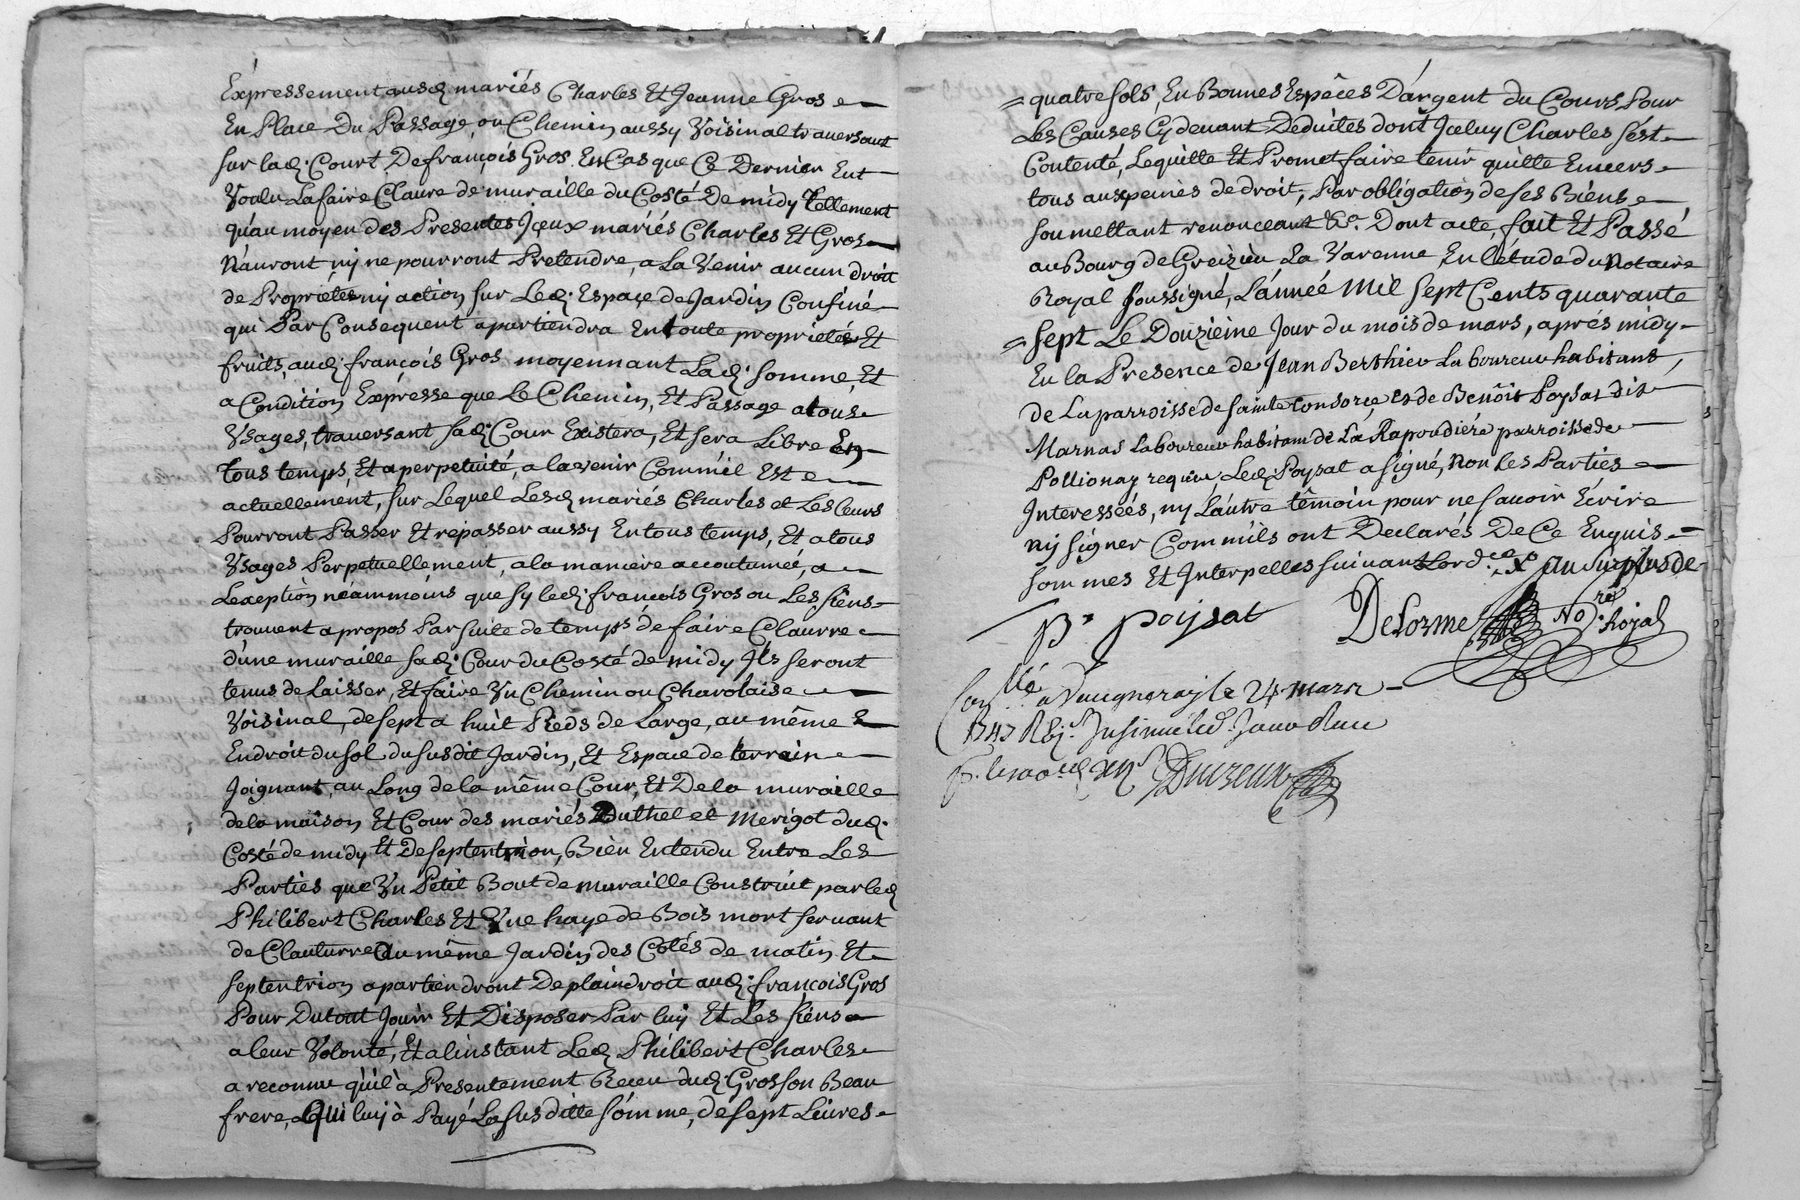 Expressement ausd mariés Charles Et Jeanne Gros
En Place Du Passage, ou Chemin aussy Voisinal traversant
sur lad. Court De françois Gros, En Cas que Ce Dernier Eut
Voulu La faire Claure de muraille du Costé De midy Tellement
qu'au moyen des Presentes Iceux mariés Charles Et Gros
N'auront ny ne pourront Pretendre, a La Venir aucun droit
de Propriétés ny action sur Led. Espace de Jardin Confiné
qui Par Consequent apartiendra En toute proprietés Et
fruits, aud. françois Gros moyennant Lad. somme, Et
a Condition Expresse que Le Chemin, Et Passage a tous
Vsages, traversant sad. Cour Existera, Et sera Libre En
tous temps, Et a perpetuité, a la venir Comm'il Est
actuellement, sur Lequel Lesd mariés Charles et Les Leurs
Pourront Passer Et repasser aussy En tous temps, Et a tous
Vsages Perpetuellement, a la maniere accoutumée, a
L'exeption néammoins que sy led. françois Gros ou Les siens
trouvent a propos Par suite de temps de faire Claurre
d'une muraille sad. Cour du Costé de midy Ils seront
tenus de Laisser, Et faire Vn Chemin ou Charolaise
Voisinal, de sept a huit Pieds de Large, au même
Endroit du sol du susdit Jardin, Et Espace de terrain
Joignant, au Long de la même Cour, Et De la muraille
de la maison Et Cour des mariés Duthel et Merigot dud.
Costé de midy Et De septentrion, Bien Entendu Entre Les
Parties que Vn Petit Bout de muraille Construit par led
Philibert Charles Et Vne haye de Bois mort servant
de Clauturre au même Jardin des Cotés de matin Et
septentrion apartiendront De plain droit aud. françois Gros
Pour Du tout Jouir Et Disposer Par luy Et Les siens
a leur Volonté, Et a linstant Led Philibert Charles
a reconnu qu'il à Presentement Receu dud. Gros son Beau
frere, Qui luy à Payé La susditte somme, de sept Livres
= quatre sols, En Bonnes Espêces D'argent du Cours, Pour
Les Causes Cy devant Deduites dont Iceluy Charles s'ést
Contenté, Lequitte Et Promet faire tenir quitte Envers
tous aus peines de droit, Par obligation de ses Biens
soumettant renonceant &c. Dont acte, fait Et Passé
au Bourg de Greizieu La Varenne En L'étude du Notaire
Royal soussigné, L'année Mil sept Cents quarante
= sept Le Douziéme Jour du mois de mars, aprés midy
En la Presence de Jean Berthieu Laboureur habitant,
de La parroisse de sainte Consorce, Et de Benôit Poysat dit
Marnas Laboureur habitant de La Rapoudiére parroisse de
Pollionay requis, Led. Poysat a signé, Non Les Parties
Interessées, ny L'autre têmoin pour ne savoir Ecrire
ny signer Comm'ils ont Declarés De Ce Enquis
sommes Et Interpellés suivant Lord.ce au surplus de
B. poysat
Delorme No.re Royal
Con.llé a Vaugneray le 24 mars
1747 Reç.